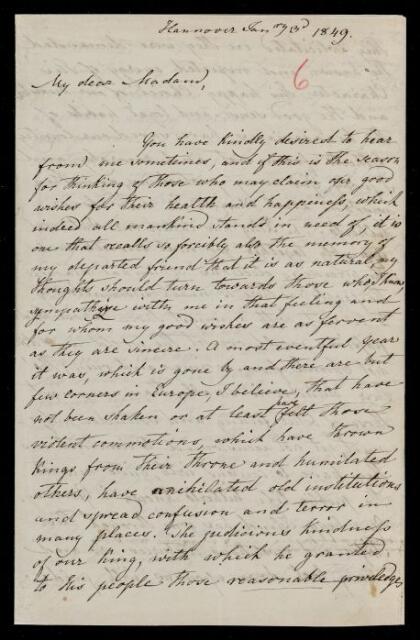 Hannover Janry 3d 1849.
6
My dear Madam,
You have kindly desired to hear
from me sometimes, and if this is the season
for thinking of those who may claim our good
wishes for their health and happiness, which
indeed all mankind stands in need of, it is
one that recalls so forcibly also the memory of
my departed friend that it is as natural, my
thoughts should turn towards those who I know
sympathise with me in that feeling and
for whom my good wishes are as fervent
as they are sincere. A most eventful year
it was, which is gone by and there are but
few corners in Europe, I believe, that have
not been shaken or at least have felt those
violent commotions, which have thrown
Kings from their throne and humiliated
others, have anihilated old institutions
and spread confusion and terror in
many places. The judicious kindness
of our King, with which he granted
to his people those reasonable priviledges